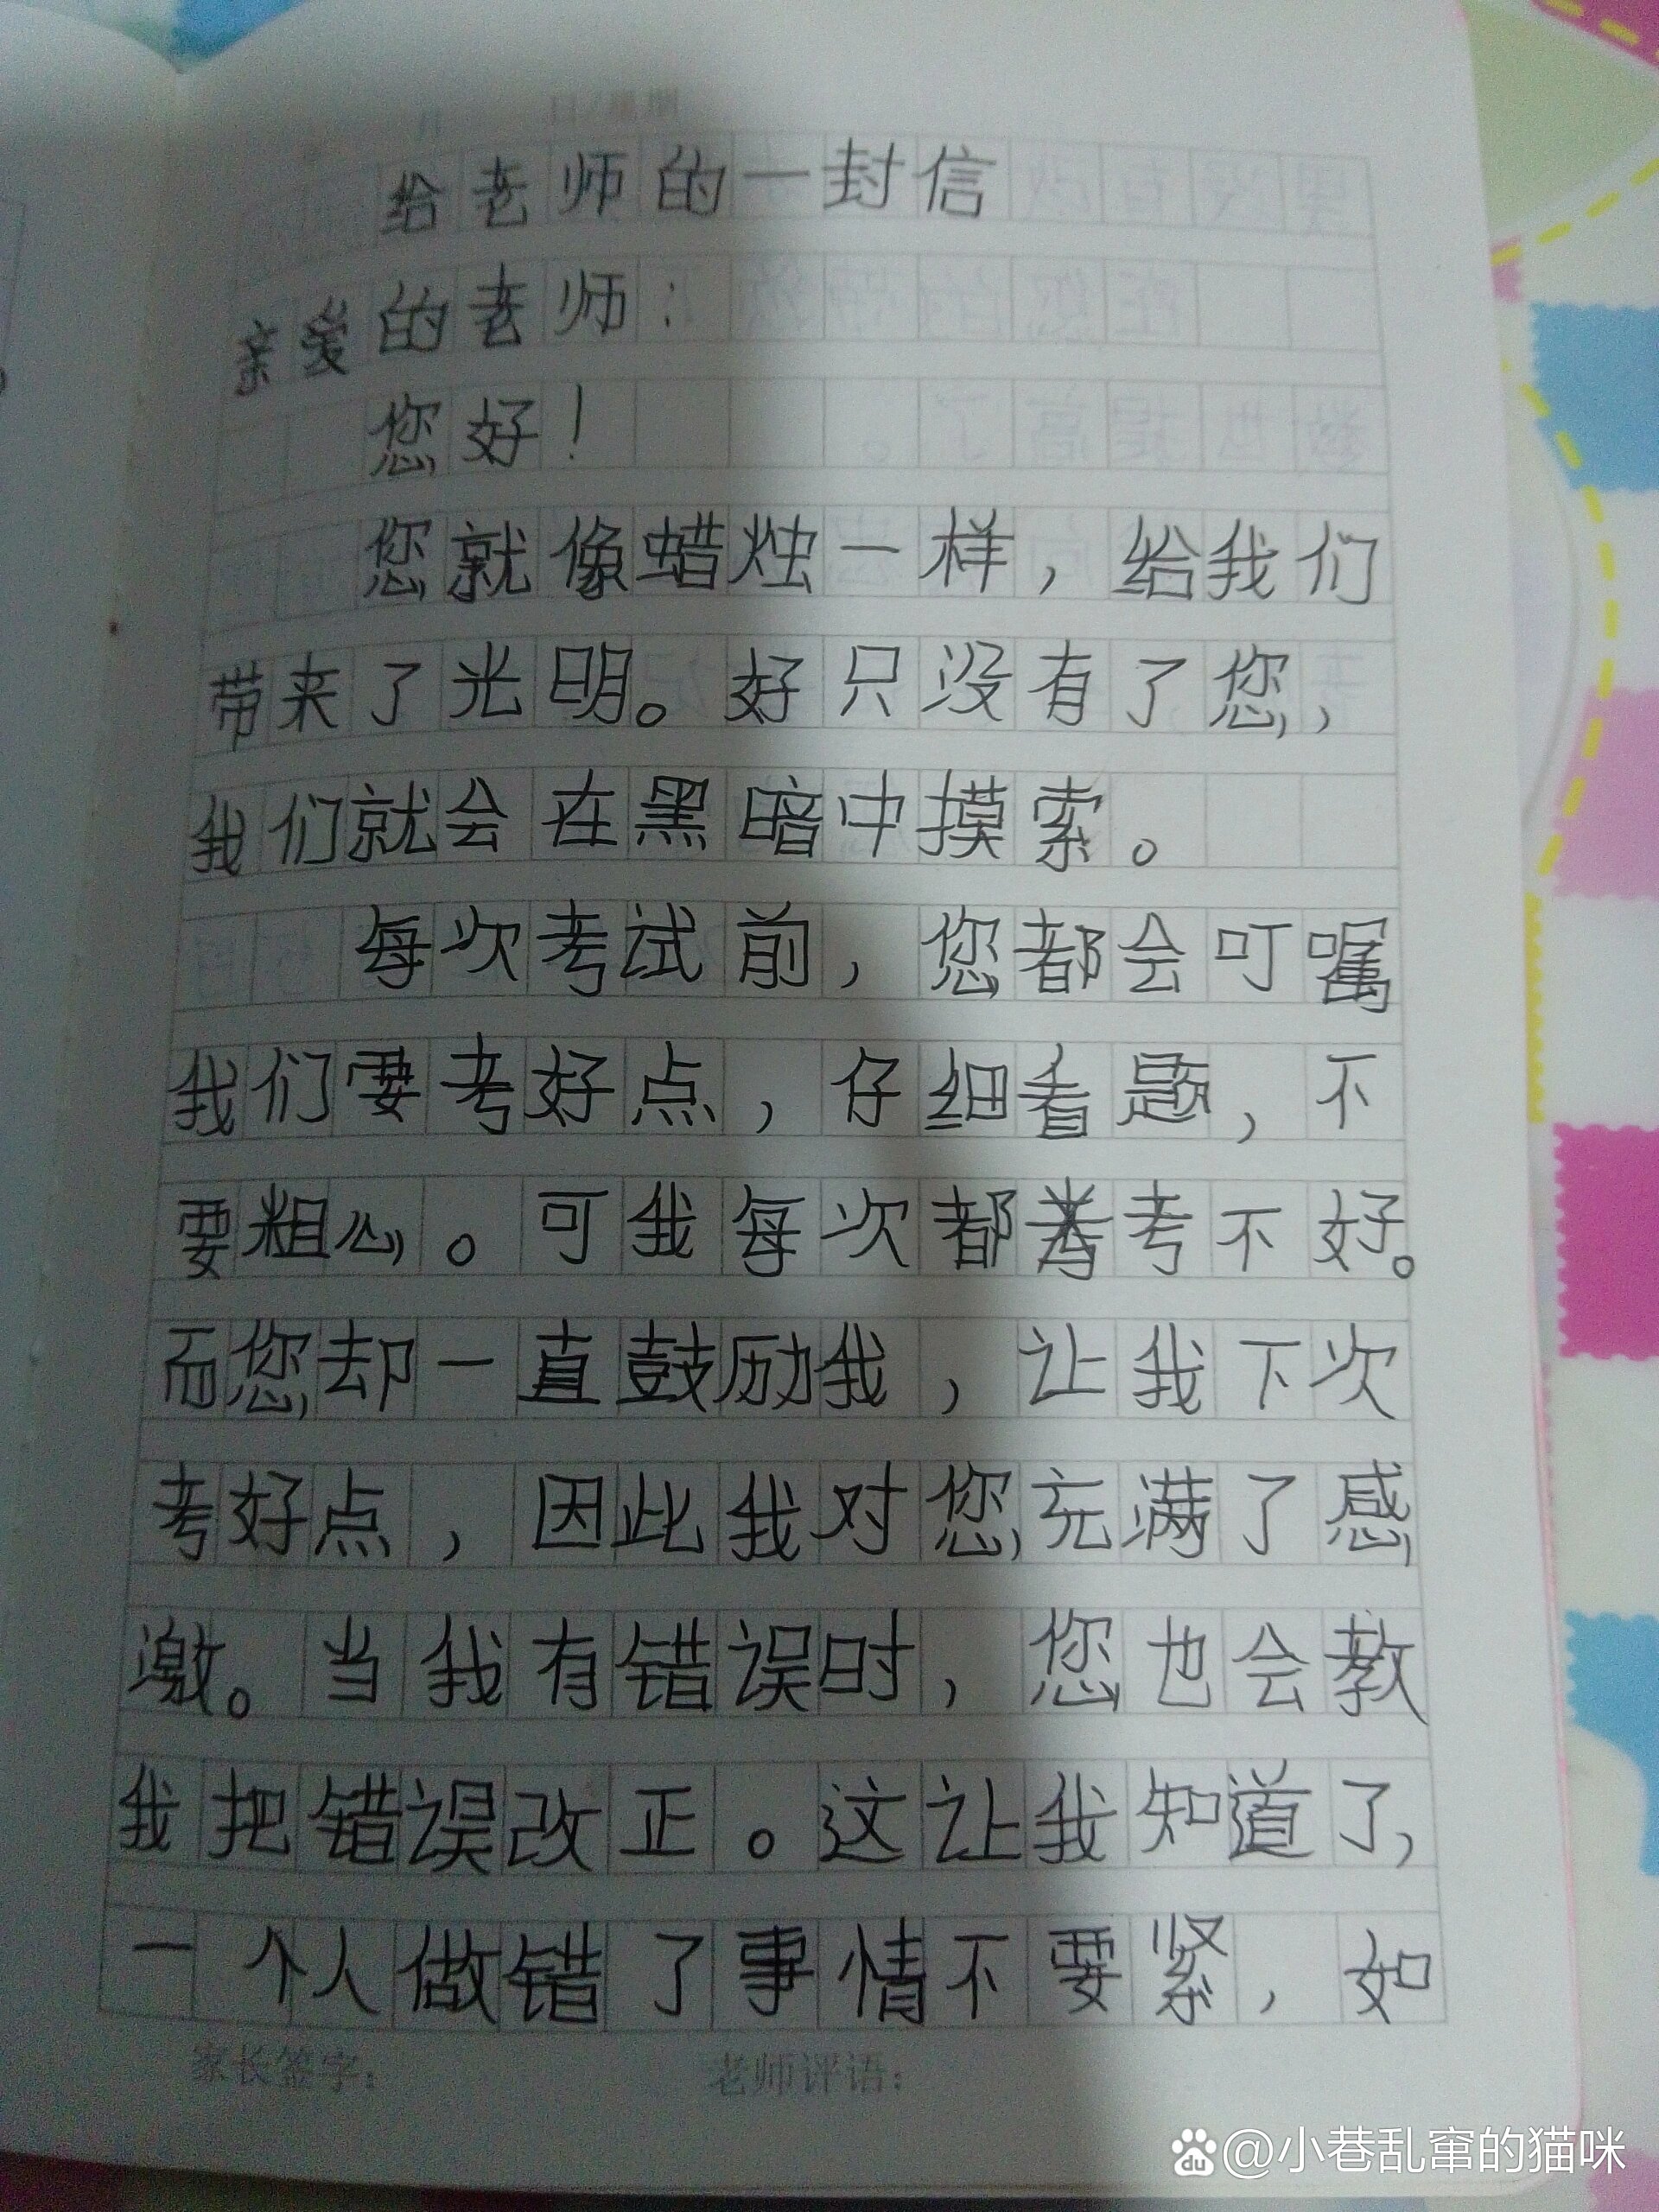 给老师的一封信
亲爱的老师：
您好！
您就像蜡烛一样，给我们
带来了光明。好只没有了您，
我们就会在黑暗中摸索。
每次考试前，您都会叮嘱
我们要考好点，仔细看题，不
要粗心。可我每次都考不好。
而您却一直鼓励我，让我下次
考好点，因此我对您充满了感
激。当我有错误时，您也会教
我把错误改正。这让我知道了，
一个人做错了事情不要紧，如
家长签字：
老师评语：
@小巷乱窜的猫咪